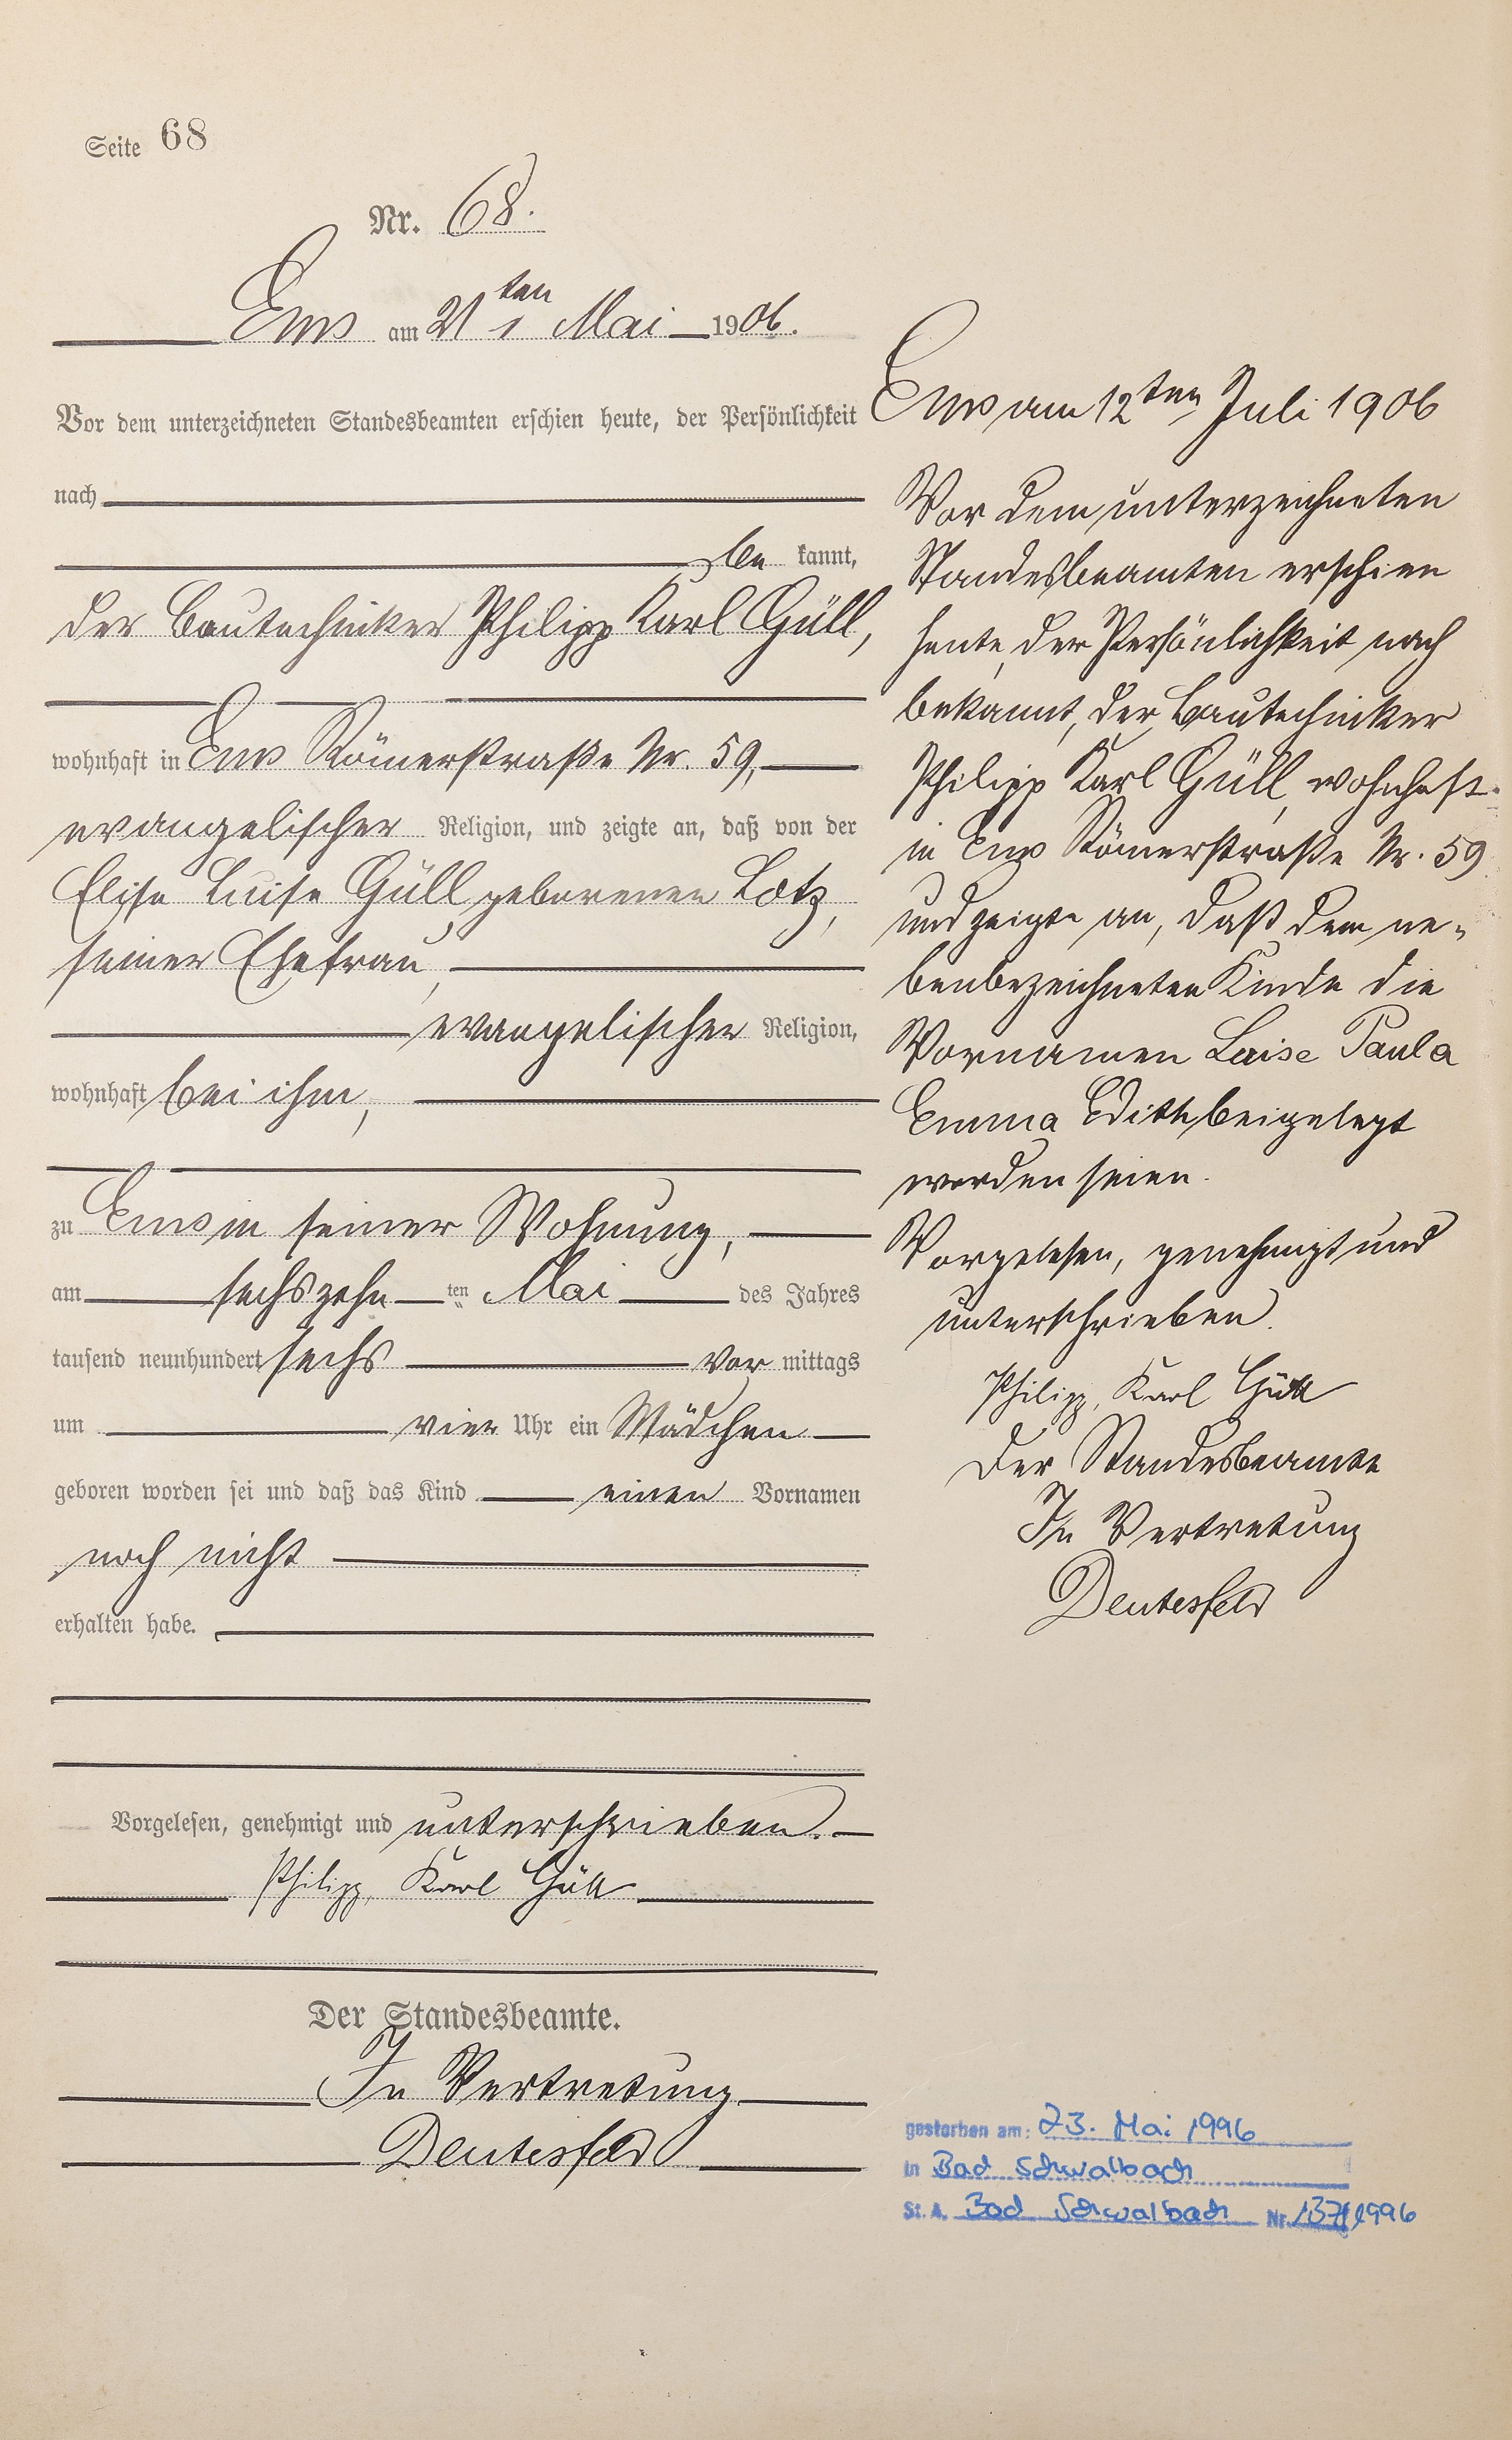 Seite 68
Nr. 68.
Ems am 21ten Mai 1906.
Vor dem unterzeichneten Standesbeamten erschien heute, der Persönlichkeit
nach
be kannt,
der Bautechniker Philipp Karl Güll,
wohnhaft in Ems Römerstraße Nr. 59,
evangelischer Religion, und zeigte an, daß von der
Elise Luise Güll, geborenen Lotz,
seiner Ehefrau,
evangelischer Religion,
wohnhaft bei ihm,
zu Ems in seiner Wohnung,
am sechszehn ten Mai des Jahres
tausend neunhundert sechs Vor mittags
um vier Uhr ein Mädchen
geboren worden sei und daß das Kind einen Vornamen
noch nicht
erhalten habe.
Vorgelesen, genehmigt und unterschrieben.
Philipp, Karl Güll
Der Standesbeamte.
In Vertretung
Deutesfeld
Ems am 12ten Juli 1906
Vor dem unterzeichneten
Standesbeamten erschien
heute, der Persönlichkeit nach
bekannt, der Bautechniker
Philipp Karl Güll, wohnhaft
in Ems Römerstraße Nr. 59
und zeigte an, daß dem ne-
benbezeichneten Kinde die
Vornamen Luise Paula
Emma Edith beigelegt
worden seien.
Vorgelesen, genehmigt und
unterschrieben.
Philipp, Karl Güll
Der Standesbeamte
In Vertretung
Deutesfeld
gestorben am: 23. Mai 1996
in Bad Schwalbach
St. A. Bad Schwalbach Nr. 137/1996